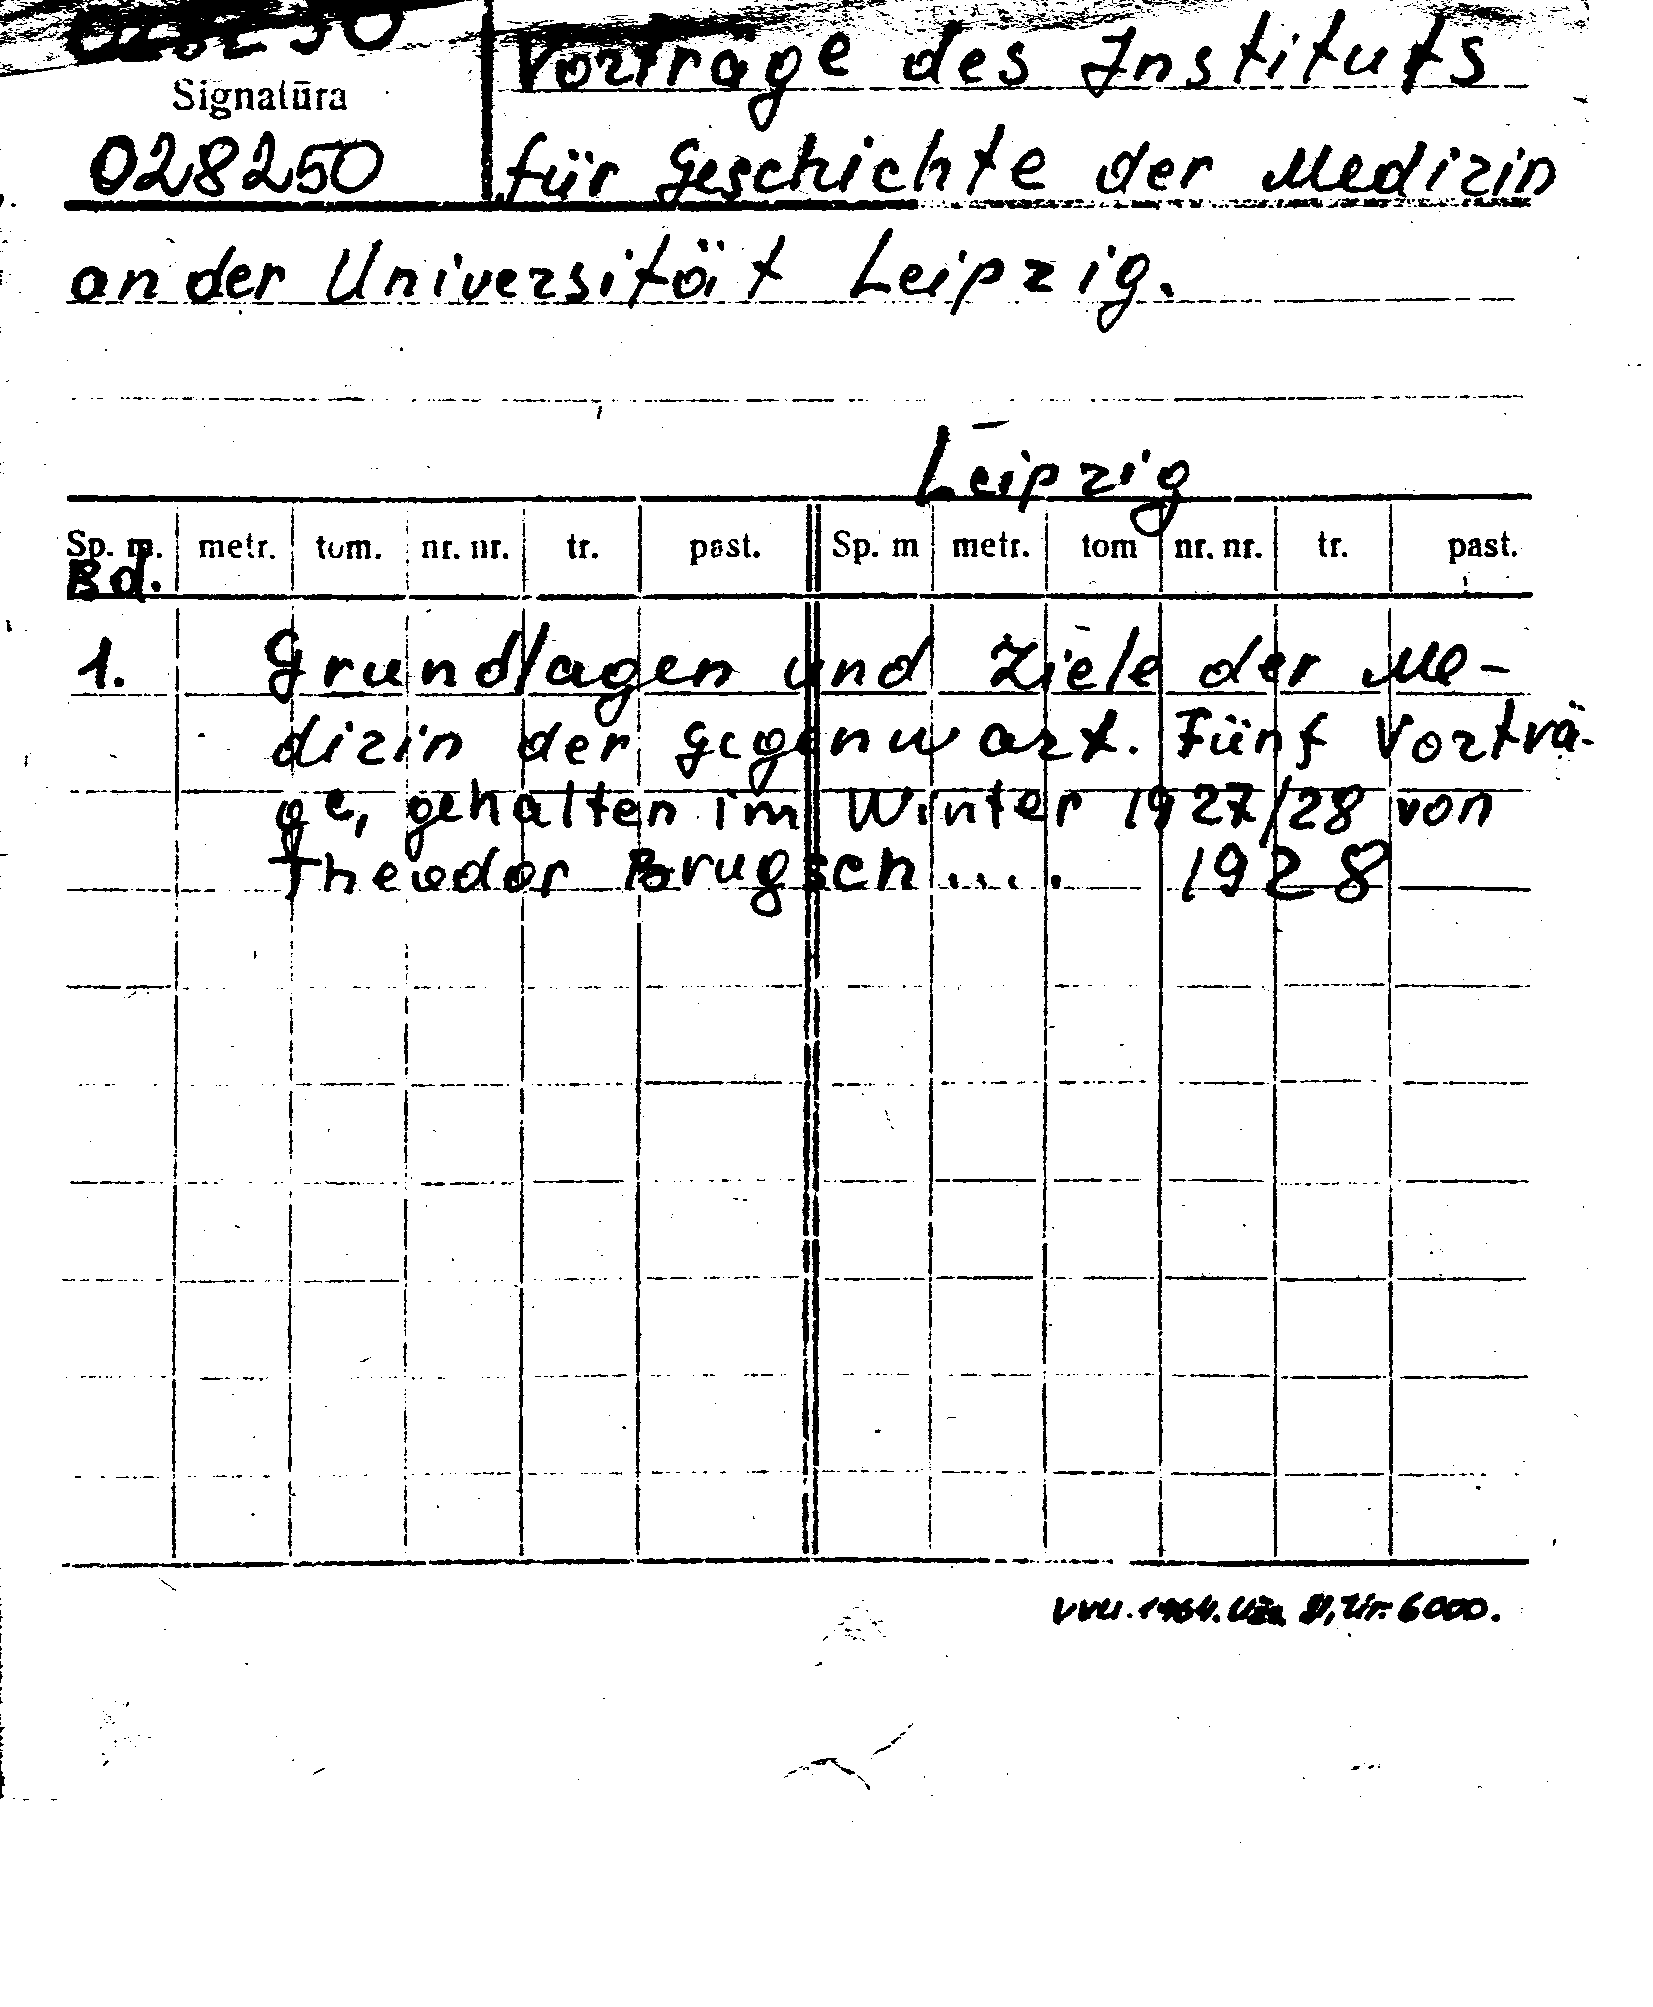 028250
Signatūra
028250
Vorträge des Instituts
für Geschichte der Medizin
an der Universität Leipzig.
Leipzig
Sp. m. metr. tom. nr. nr. tr. past. Sp. m metr. tom nr. nr. tr. past.
Bd.
1. Grundlagen und Ziele der Me-
dizin der Gegenwart. Fünf Vorträ-
ge, gehalten im Winter 1927/28 von
Theodor Brugsch .... 1928
VVU. 1964. Užs. Tir. 6000.